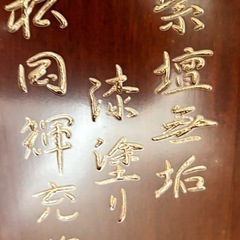 紫壇無垢
漆塗り
松岡輝充